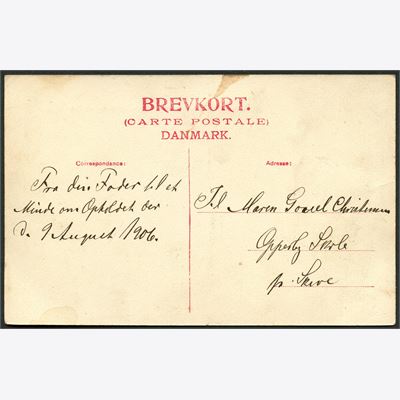 BREVKORT.
(CARTE POSTALE)
DANMARK.
Correspondance:
Fra din Fader til et
Minde om Opholdet her
D. 9 August 1906.
Adresse:
Til Maren Christensen
Skole
p. Skive